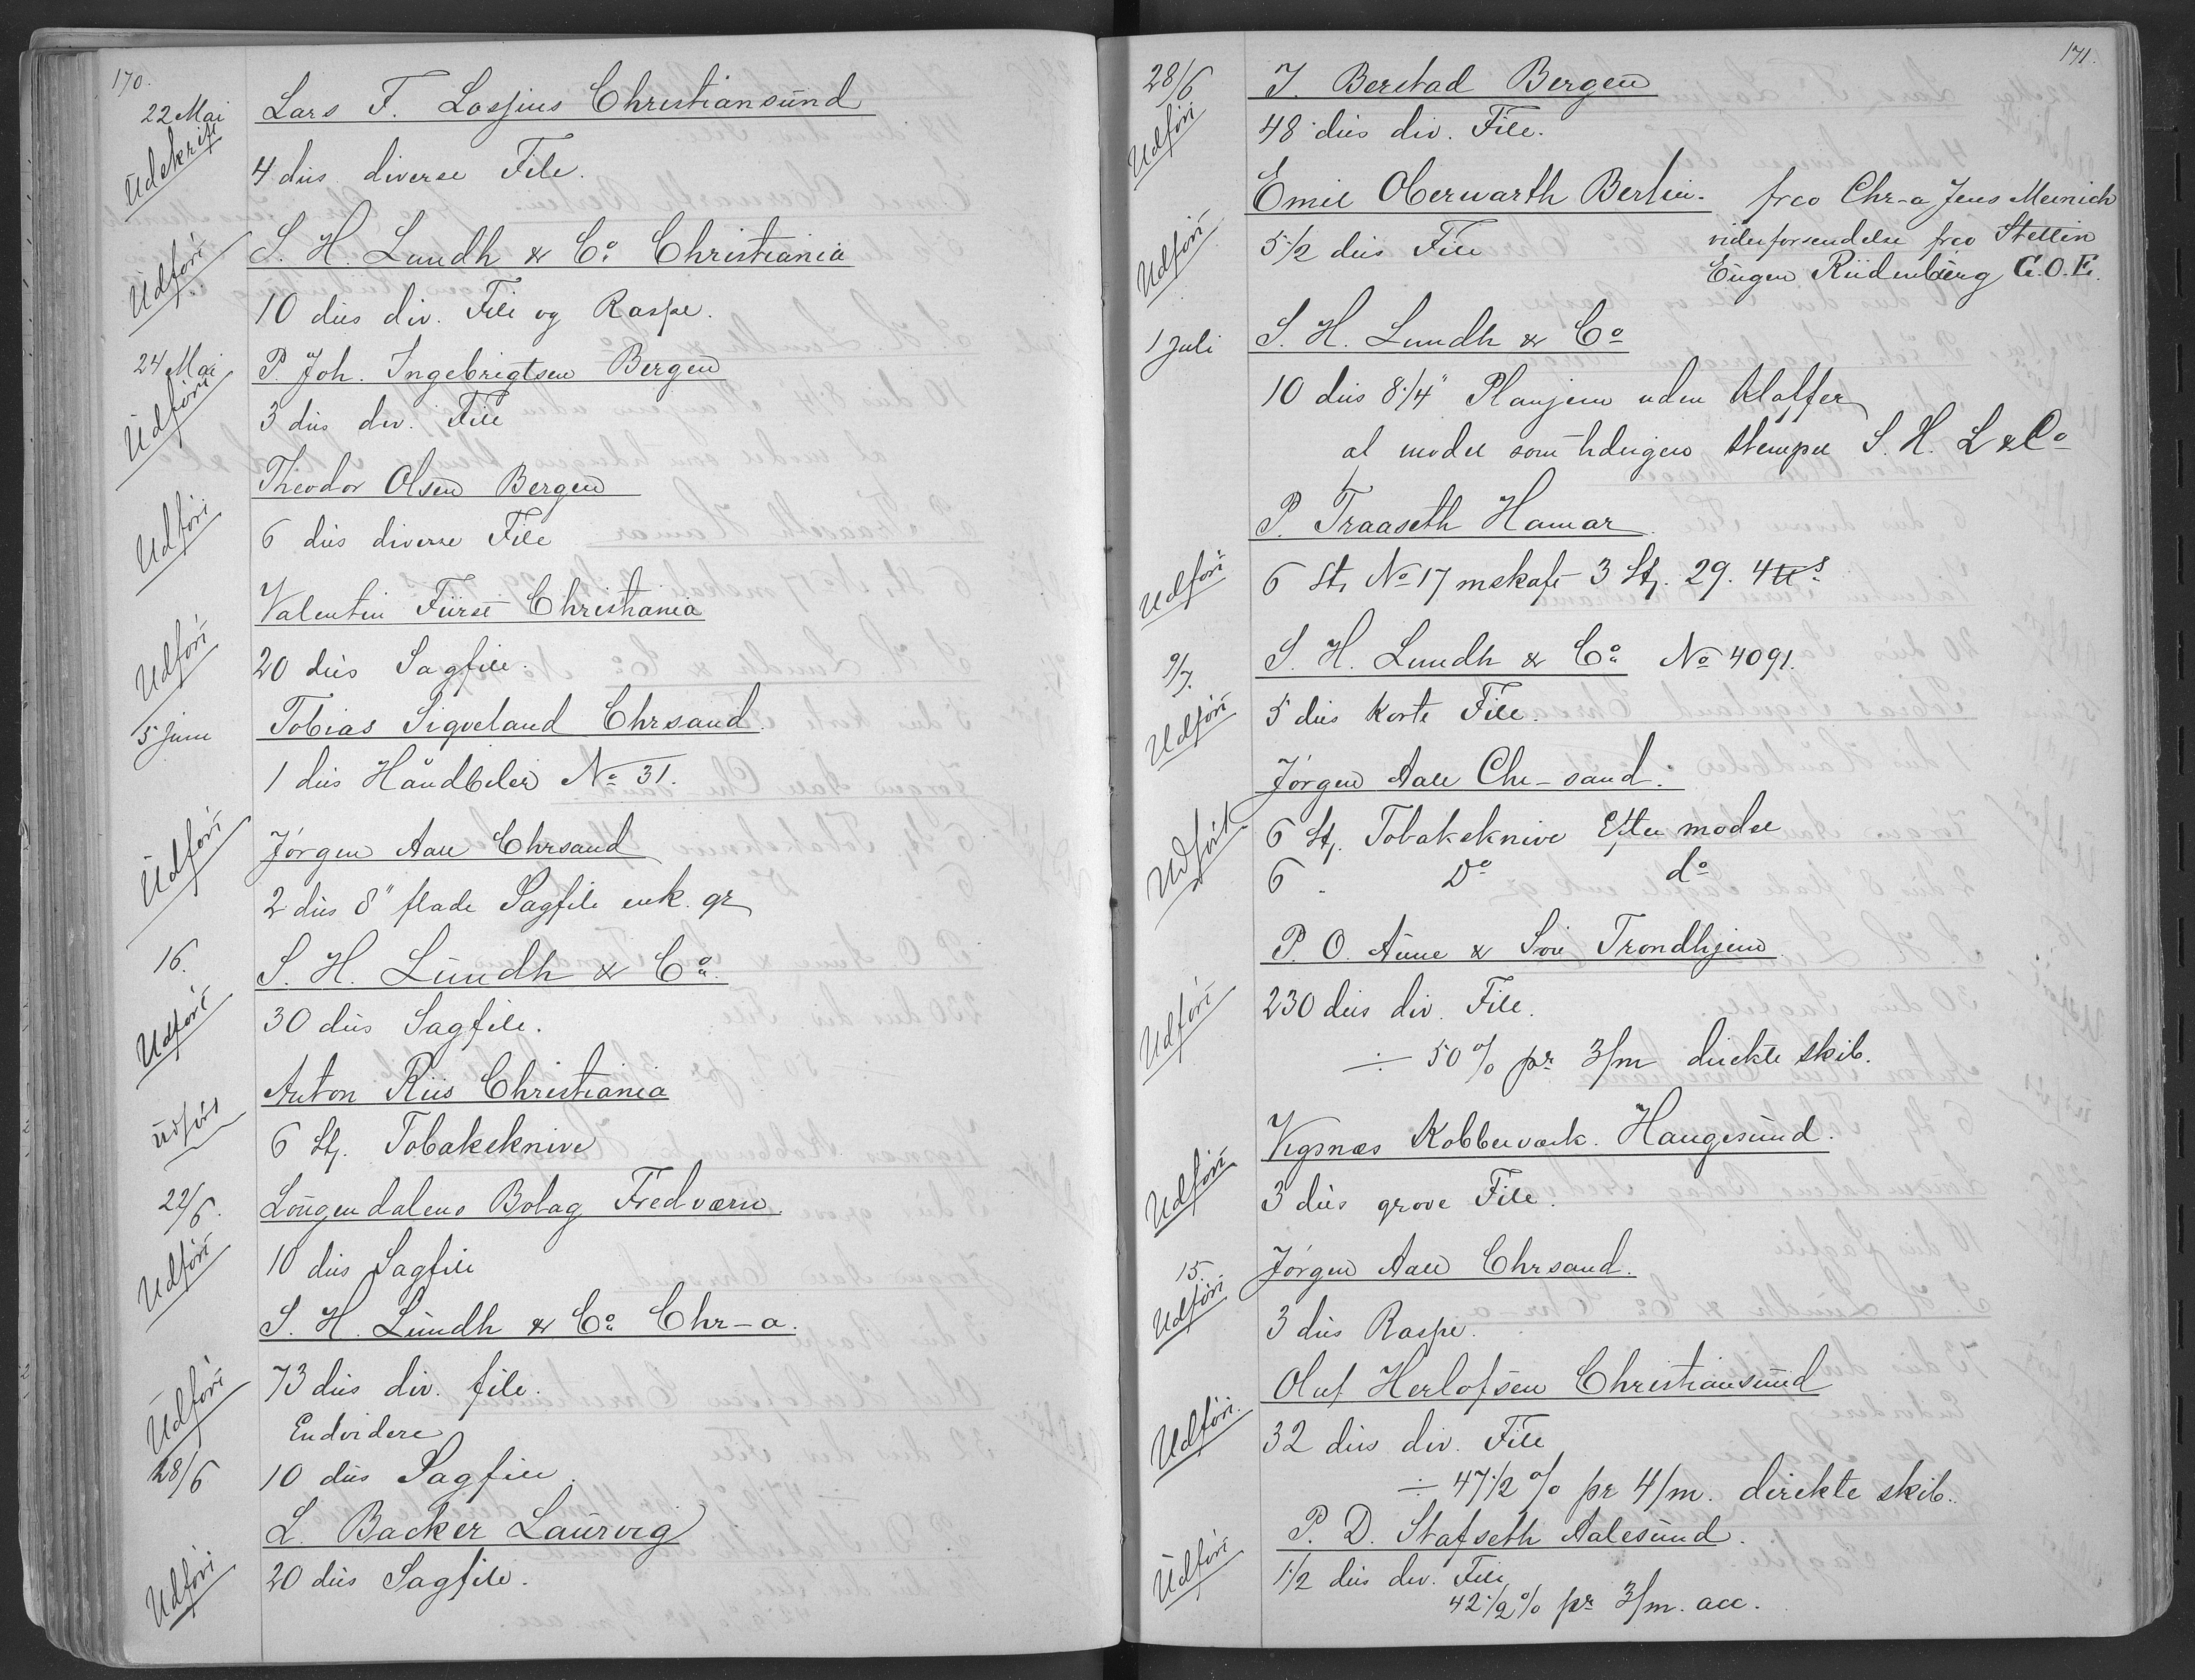 170.
22 Mai Lars F. Lossius Christiansund
Udskrift
4 dus diverse File.
S. H. Lundh & Co. Christiania
Udført
10 dus div. File og Raspe.
24 Mai P. Joh. Ingebrigtsen Bergen
Udført
3 dus div. File
Theodor Olsen Bergen
Udført
6 dus diverse File
Valentin Fürst Christiania
Udført
20 dus Sagfile.
5 Juni Tobias Sigveland Chrsand.
1 dus Håndbiler No 31.
Udført
Jørgen Aall Chrsand
2 dus 8" flade Sagfile enk. gr
16. S. H. Lundh & Co.
30 dus Sagfile.
Udført
Anton Riis Christiania
Udført
6 St. Tobakskniver
22/6. Lougendalens Bolag Fredværn.
Udført
10 dus Sagfile
S. H. Lundh & Co. Chr-a.
Udført
73 dus div. file.
Endvidere
28/6 10 dus Sagfile.
L. Backer Laurvig
Udført
20 dus Sagfile.
171.
28/6 J. Berstad Bergen
Udført
48 dus div. File.
Emil Oberwarth Berlin. frco Chr-a Jens Meinich
Udført
5 1/2 dus File viderforsendelse frco Stettin
Eugen Rüdenburg G.O.E.
1 Juli S. H. Lundh & Co
10 dus 8 1/4" Planjern uden Klaffer
al model som tidligere stempel S. H. L & Co
P. Traaseth Hamar.
Udført
6 St. No 17 m skaft 3 St. 29. 4 tts
9/7. S. H. Lundh & Co. No 4091.
Udført
5 dus korte File.
Jørgen Aall Chr-sand.
Udført
6 St. Tobakskniver Efter model
6 . Do do
P. O. Aune & Søn Trondhjem
Udført
230 dus div. File.
÷ 50% pr 3/m direkte skib.
Vigsnæs Kobberværk. Haugesund.
Udført
3 dus grove File.
15. Jørgen Aall Chrsand.
Udført
3 dus Raspe.
Oluf Herlofsen Christiansund
Udført.
32 dus div. File
÷ 47 1/2 % pr 4/m. direkte skib.
P. D. Stafseth Aalesund.
Udført
1 1/2 dus div. File
42 1/2 % pr 3/m. acc.